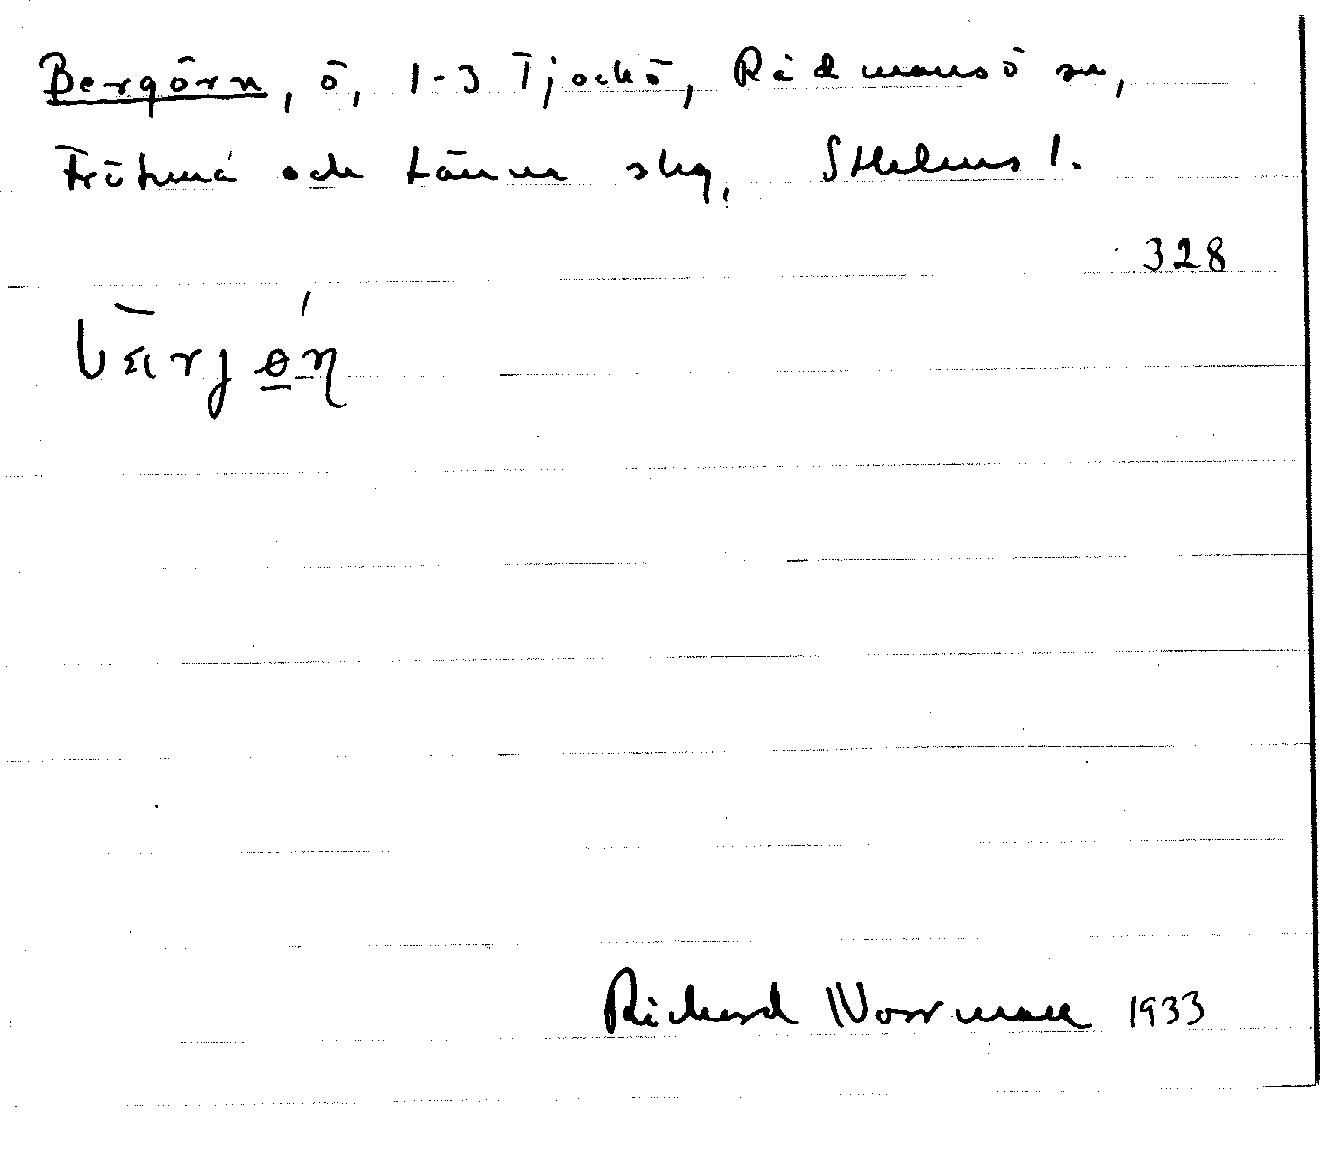 Bergörn, ö, 1-3 Tjockö, Rådmansö sn,
Frötuna och Länna skg, Sthlms l.
328
Richard Norrman 1933